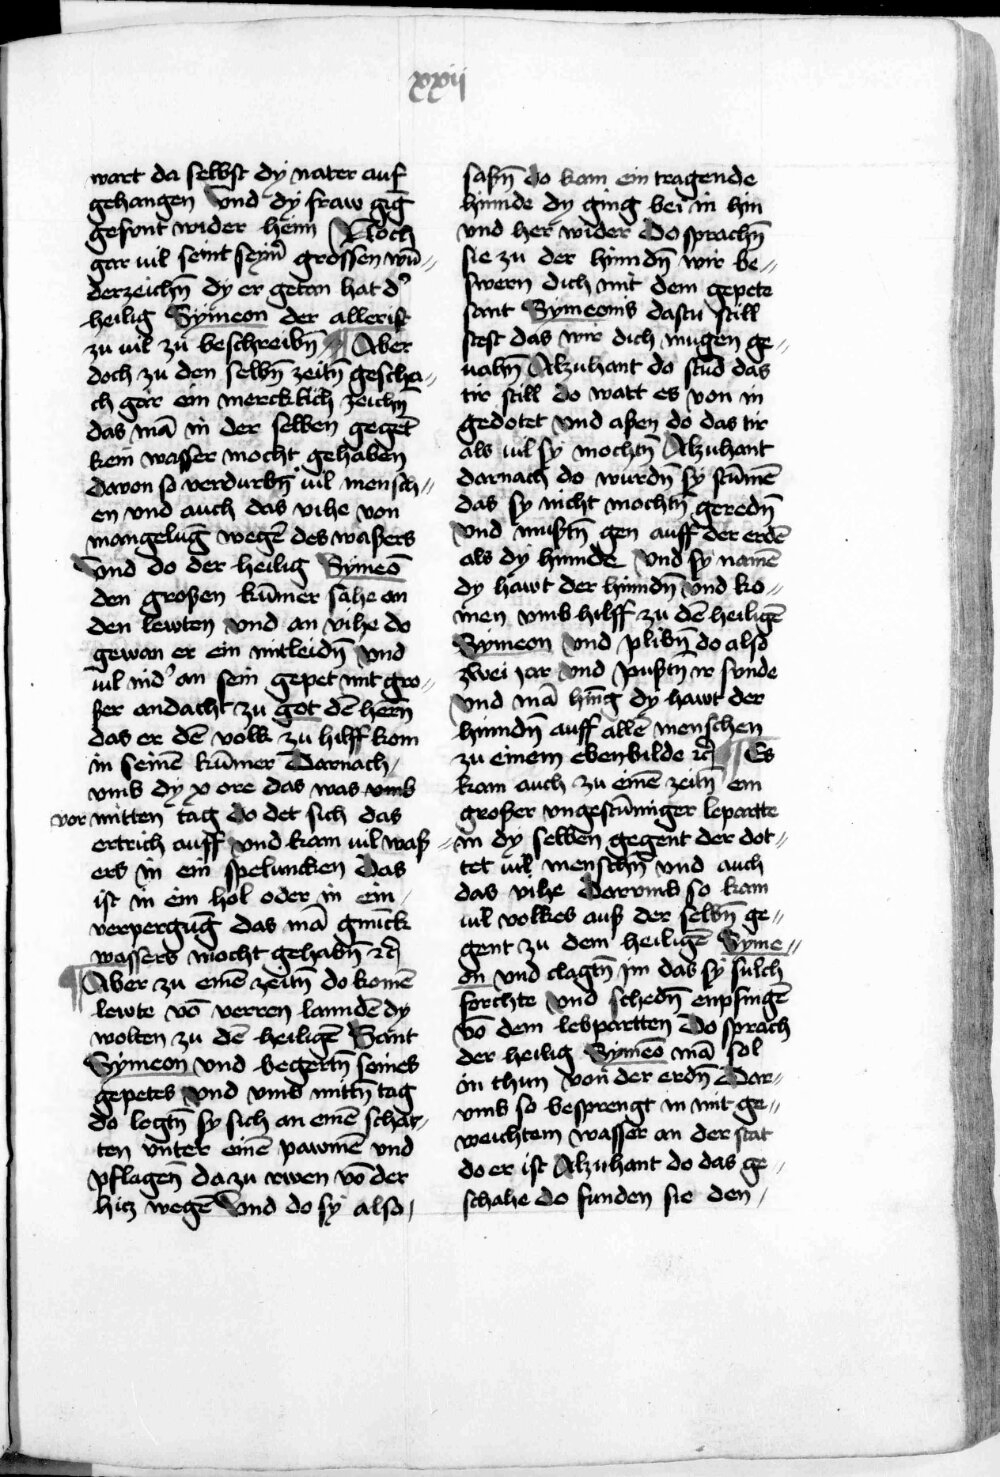 xxij
wart da selbst dy nater auf
gehangen Vnd dy fraw gīg
gesunt wider heim Noch
gar uil seint seyner grossen wū⸗
derzeichn̄ dy er getan hat d'
heilig Symeon der allerist
zu uil zu beschreibn̄ ¶ Aber
doch zu den selbn̄ zeitn̄ gescha⸗
ch gar ein mercklich zeichn̄
das mā in der selben gegēt
kein wasser mocht gehaben
Dauon so verdurbn̄ uil mensch⸗
en vnd auch das vihe von
mangelūg wegē des waßers
Vnd do der heilig Symeō
den großen kūmer sahe an
den lewten Vnd an vihe do
gewan er ein mitleidn̄ Vnd
uil nid' an sein gepet mit gro⸗
ßer andacht zu got dē hern̄
das er dē volk zu hilff kom
in seinē kūmer Darnach
vmb dy x ore das was vmb
vor mitten tag do det sich das
ertrich auff Vnd kam uil waß⸗
ers in ein speluncken Das
ist in ein hol oder in ein
verpergūg das mā gnūck
wassers mocht gehabn̄ rc̄
¶ Aber zu einē zeitn̄ do komē
lewte vō verren lanndē dy
wolten zu dē heiligē Sant
Symeon vnd begertn̄ seines
gepetes Vnd vmb mittn̄ tag
do legtn̄ sy sich an einē schat⸗
ten vnter einē pawmē vnd
pflagen̄ da zu rwen vō der
hitz wegē Vnd do sy also
saßn̄ do kam ein tragende
hinnde dy ging bei in hin
vnd her wider Do sprachn̄
sie zu der hinndn̄ wir be⸗
swern dich mit dem gepete
sant Symeonis dastu still
stest das wir dich mugen ge⸗
uahn̄ Alzuhant do stūd das
tir still do watt es von in
gedotet Vnd aßen do das tir
als uil sy mochtn̄ Alzuhant
darnach do wurdn̄ sy stūmē
das sy nicht mochtn̄ geredn̄
Vnd mustn̄ gen auff der erdē
als dy hinnde Vnd sy namē
dy hawt der hinndn̄ Vnd ko⸗
men vmb hilff zu dē heiligē
Symeon Vnd plibn̄ do also
zwei jar Vnd pußtn̄ ir sunde
Vnd mā hīng dy hawt der
hinndn̄ auff allē menschen
zu einem ebenbilde rc̄ ¶ Es
kam auch zu einē zeitn̄ ein
großer vngestūmiger lepartte
in dy selben gegent der dot⸗
tet uil menschn̄ Vnd auch
das vihe Darvmb so kam
uil volkes auß der selbn̄ ge⸗
gent zu dem heiligē Syme⸗
on Vnd clagtn̄ jm das sy sulch
forchte Vnd schedn̄ enpfingē
vō dem lebpartten Do sprach
der heilig Symeō mā sol
in thun von der erdn̄ Dar⸗
vmb so besprengt in mit ge⸗
weichtem wasser an der stat
do er ist Alzuhant do das ge⸗
schahe do funden sie den